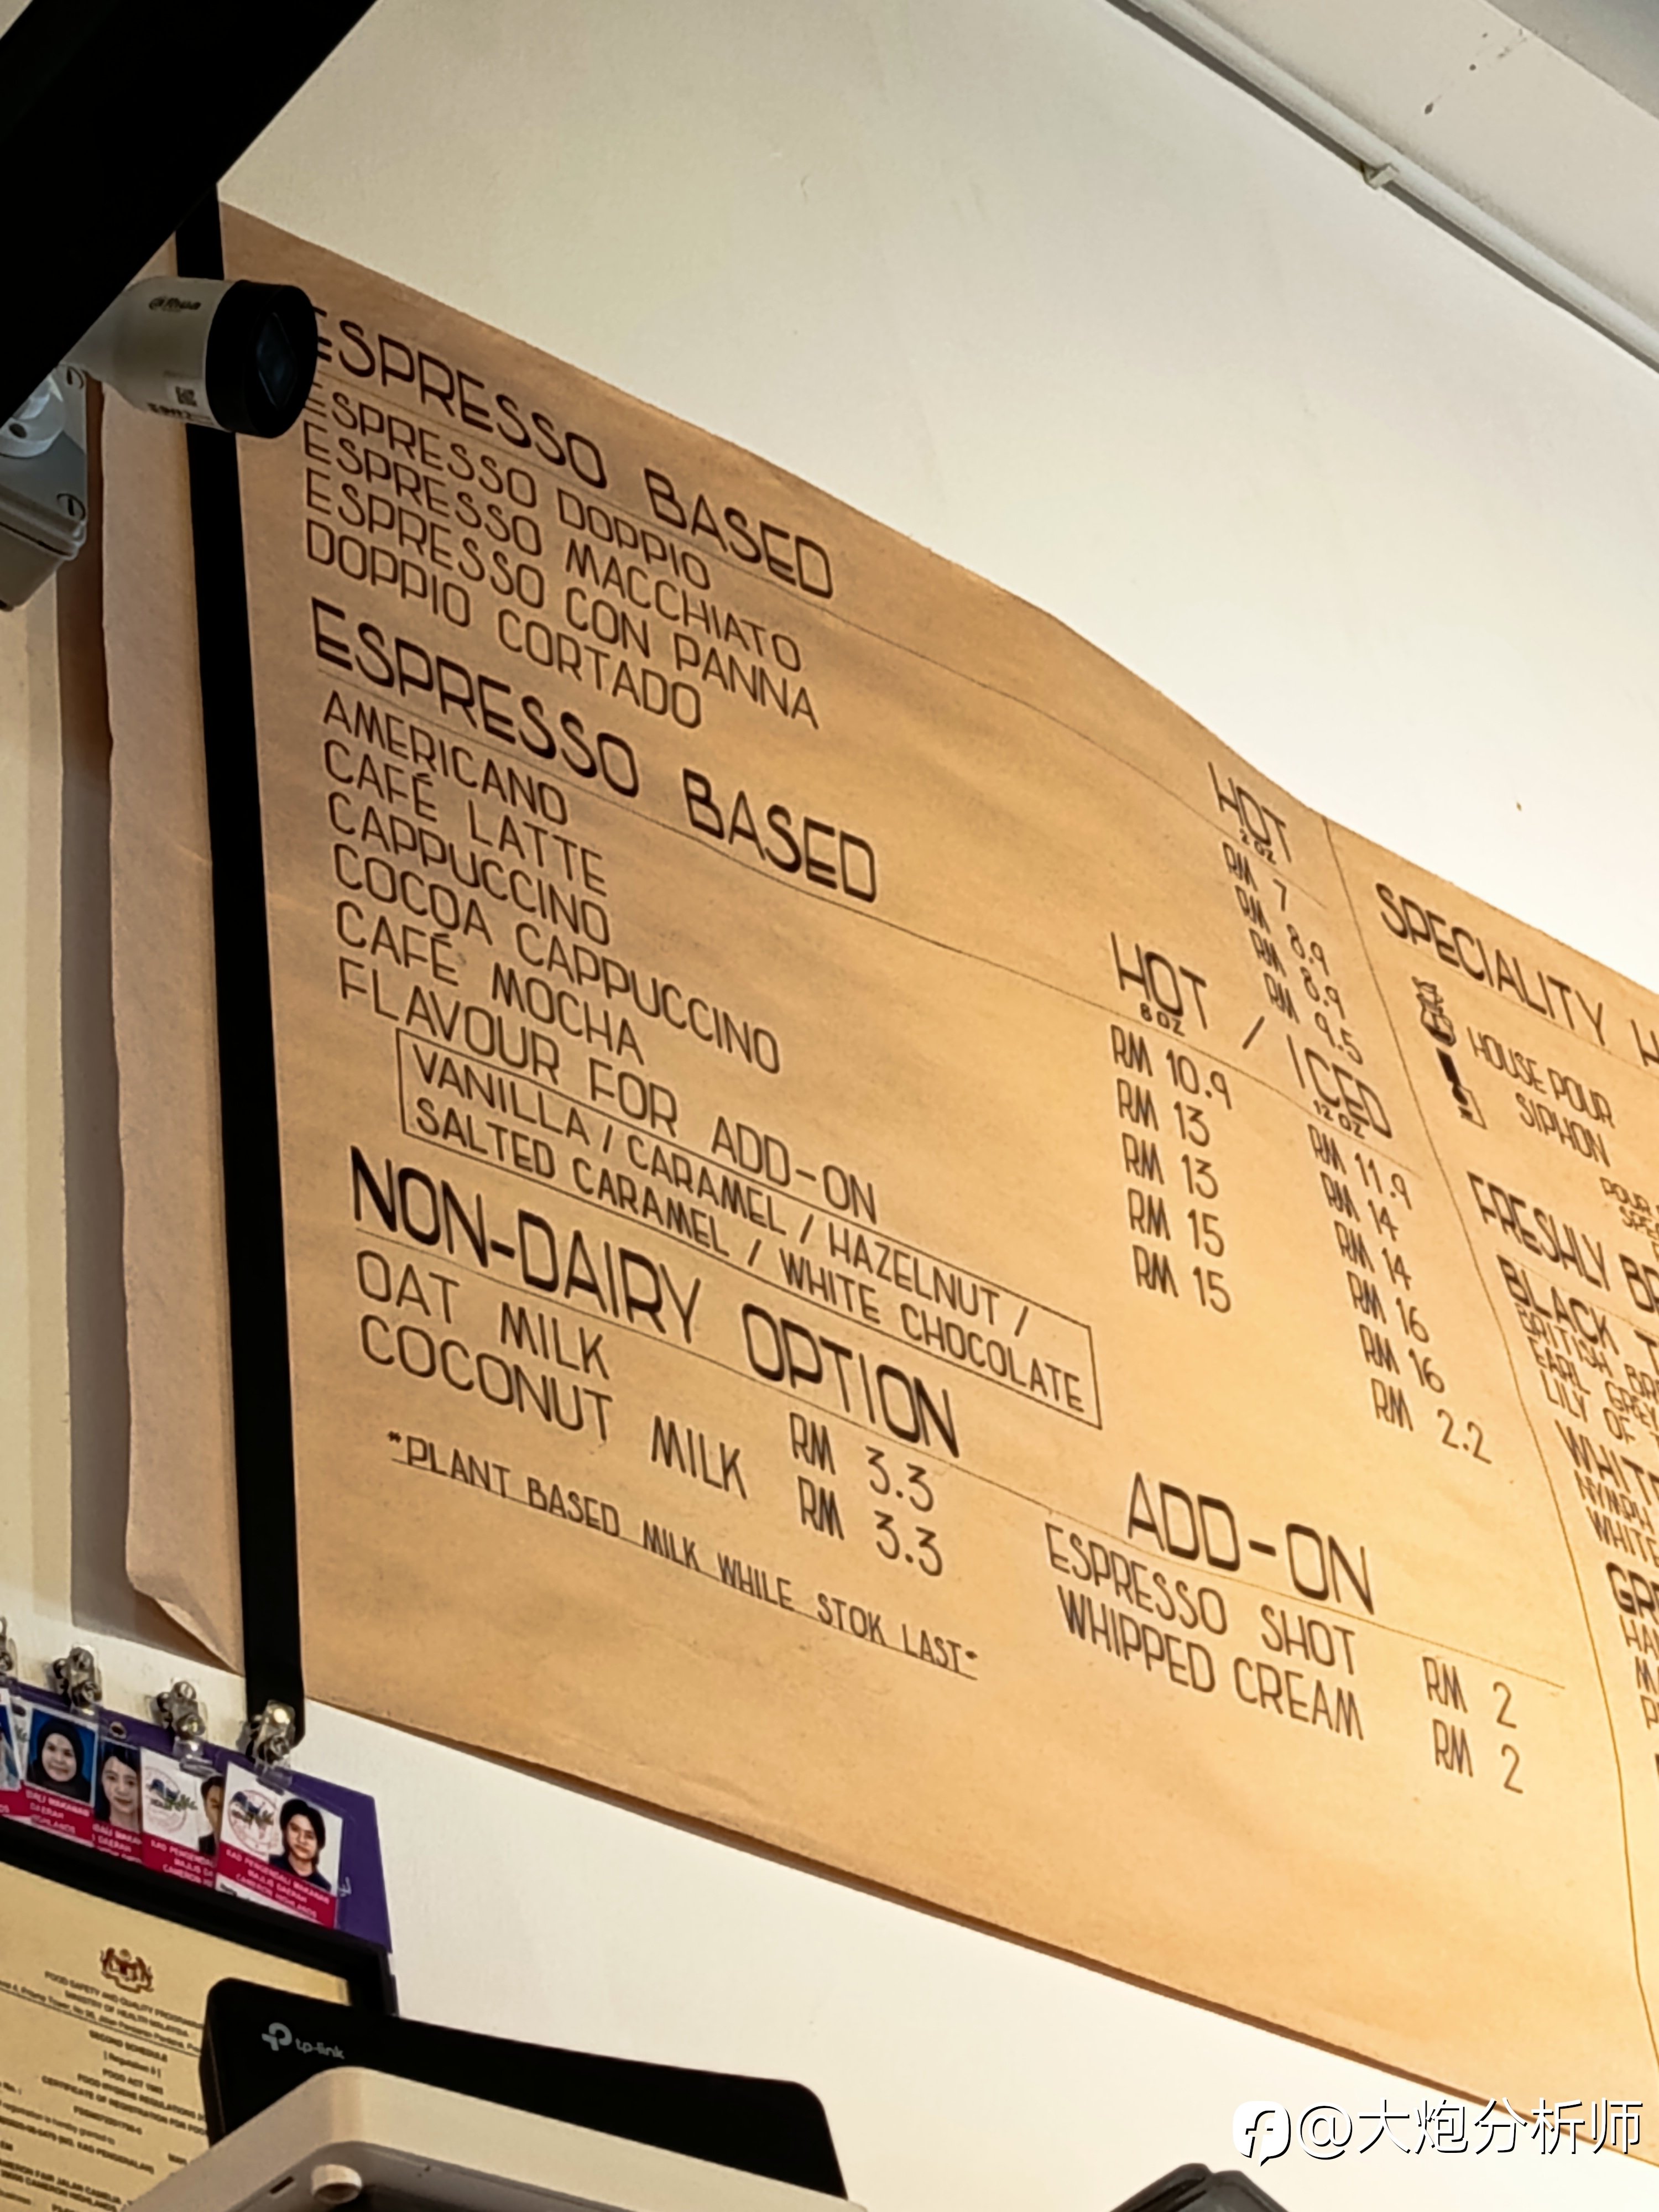 alhua
ESPRESSO BASED HOT
2 OZ
ESPRESSO DOPPIO RM 7
ESPRESSO MACCHIATO RM 8.9
ESPRESSO CON PANNA RM 8.9
DOPPIO CORTADO RM 9.5
ESPRESSO BASED HOT / ICED
8 OZ 12 OZ
AMERICANO RM 10.9 RM 11.9
CAFÉ LATTE RM 13 RM 14
CAPPUCCINO RM 13 RM 14
COCOA CAPPUCCINO RM 15 RM 16
CAFÉ MOCHA RM 15 RM 16
FLAVOUR FOR ADD-ON RM 2.2
VANILLA / CARAMEL / HAZELNUT /
SALTED CARAMEL / WHITE CHOCOLATE
NON-DAIRY OPTION
OAT MILK RM 3.3
COCONUT MILK RM 3.3
*PLANT BASED MILK WHILE STOK LAST*
ADD-ON
ESPRESSO SHOT RM 2
WHIPPED CREAM RM 2
SPECIALITY
HOUSE POUR
SIPHON
FRESHLY
BLACK
EARL GREY
LILY OF
WHITE
NYMPH
WHITE
FOOD SAFETY AND QUALITY
MINISTRY OF HEALTH MALAYSIA
SECOND SCHEDULE
FOOD ACT 1983
CERTIFICATE OF REGISTRATION FOR
tp-link
@大炮分析师